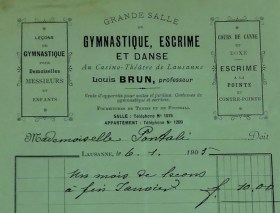 GRANDE SALLE
DE
GYMNASTIQUE, ESCRIME
ET DANSE
Au Casino-Théâtre de Lausanne
Louis BRUN, professeur
SALLE : Téléphone Nº
APPARTEMENT : Téléphone Nº
LEÇONS
DE
GYMNASTIQUE
pour
Demoiselles
MESSIEURS
ET
ENFANTS
COURS DE CANNE
ET
BOXE
ESCRIME
A LA
POINTE
ET
CONTRE-POINTE
Mademoiselle Doit
LAUSANNE, le 6. 1. 1905
Un mois de leçons
à fin Janvier f 10.00